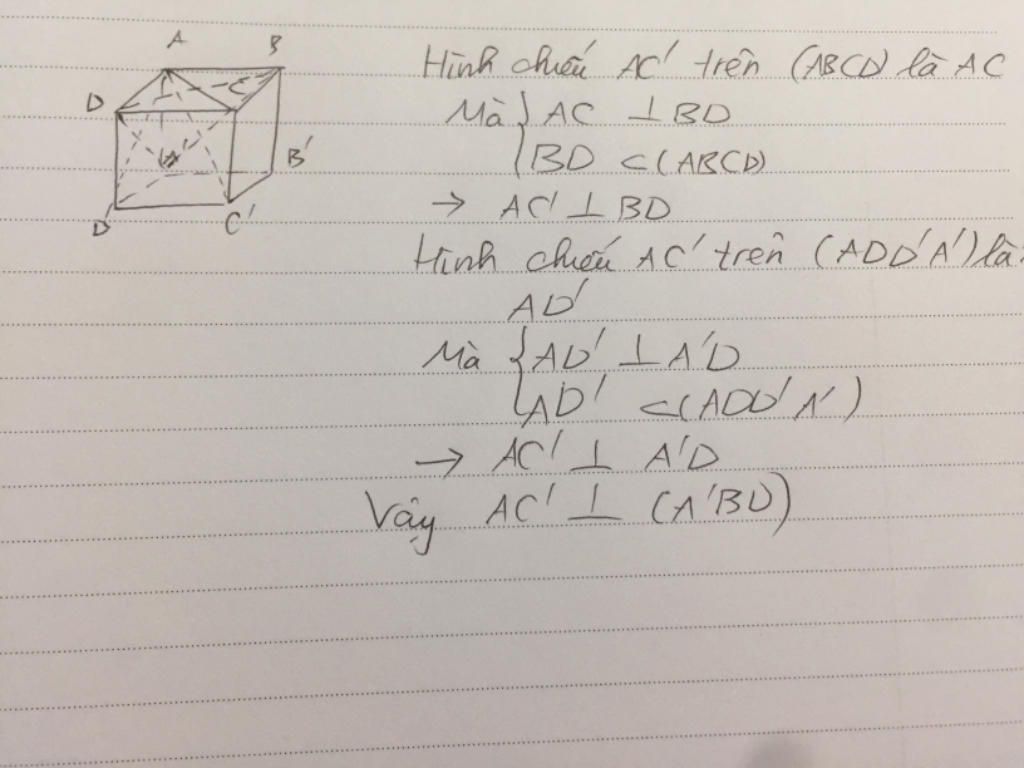 A B
Hình chiếu AC' trên (ABCD) là AC
D C
Mà { AC ⊥ BD
A' B'
{ BD ⊂ (ABCD)
D' C'
→ AC' ⊥ BD
Hình chiếu AC' trên (ADD'A') là:
AD'
Mà { AD' ⊥ A'D
{ AD' ⊂ (ADD'A')
→ AC' ⊥ A'D
Vậy AC' ⊥ (A'BD)